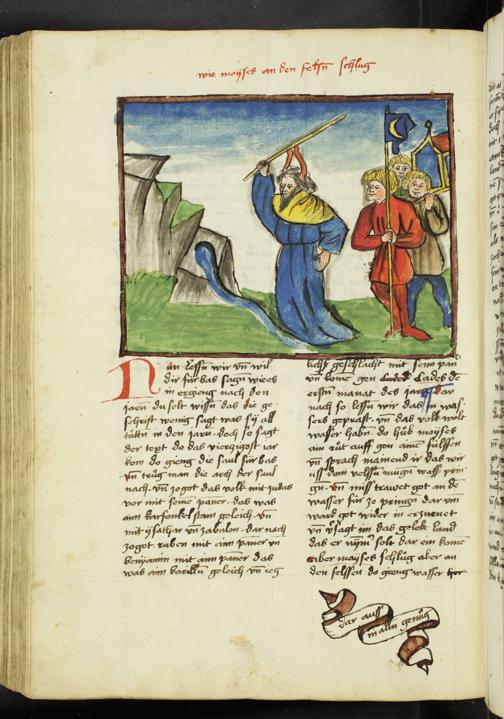 wie moyses an den felsn̄ schlug
Nun lessn̄ wir vn̄ wil
dir für bas sagn wie es
in ergeng nach den
jarn du solt wissn̄ das die ge
schrifft wenig sagt was sÿ all
tättn in den jarn. doch so sagt
der text do das viertzigost iar
kom do gieng die saul für bas
vn̄ trůg man die arch der saul
nach. vn̄ zogot das volk mit judas
vor mit seine paner. das was
ainn karfonkel stain geleich. vn̄
mit ysathar vn̄ zabulon. dar nach
zogot ruben mit ainn paner vn̄
benjamin mit ainn paner das
was ainn geleich vn̄ ieg
lichß geschlächt mit seim pan
vn̄ kome gen Cades de
erstn̄ manat des jares dar
nach so lessn̄ wir das in was
sers geprast. vn̄ das volk wolt
wasser habn̄. do hub moyses
ain růt auff gen aine fülssn̄
vn̄ sprach mainend ir das wir
uss dem velssn̄ mügn wass prin
gn. vn̄ miss trawet got an de
wasser für ze pringn dar vn̄
ward got wider in erzurnet
vn̄ sagt im das gelobt land
das er nÿmͤ solt dar ein kome
aber moyses schlůg aber an
den felssen do gieng wasser her
dar auss
malln genůg